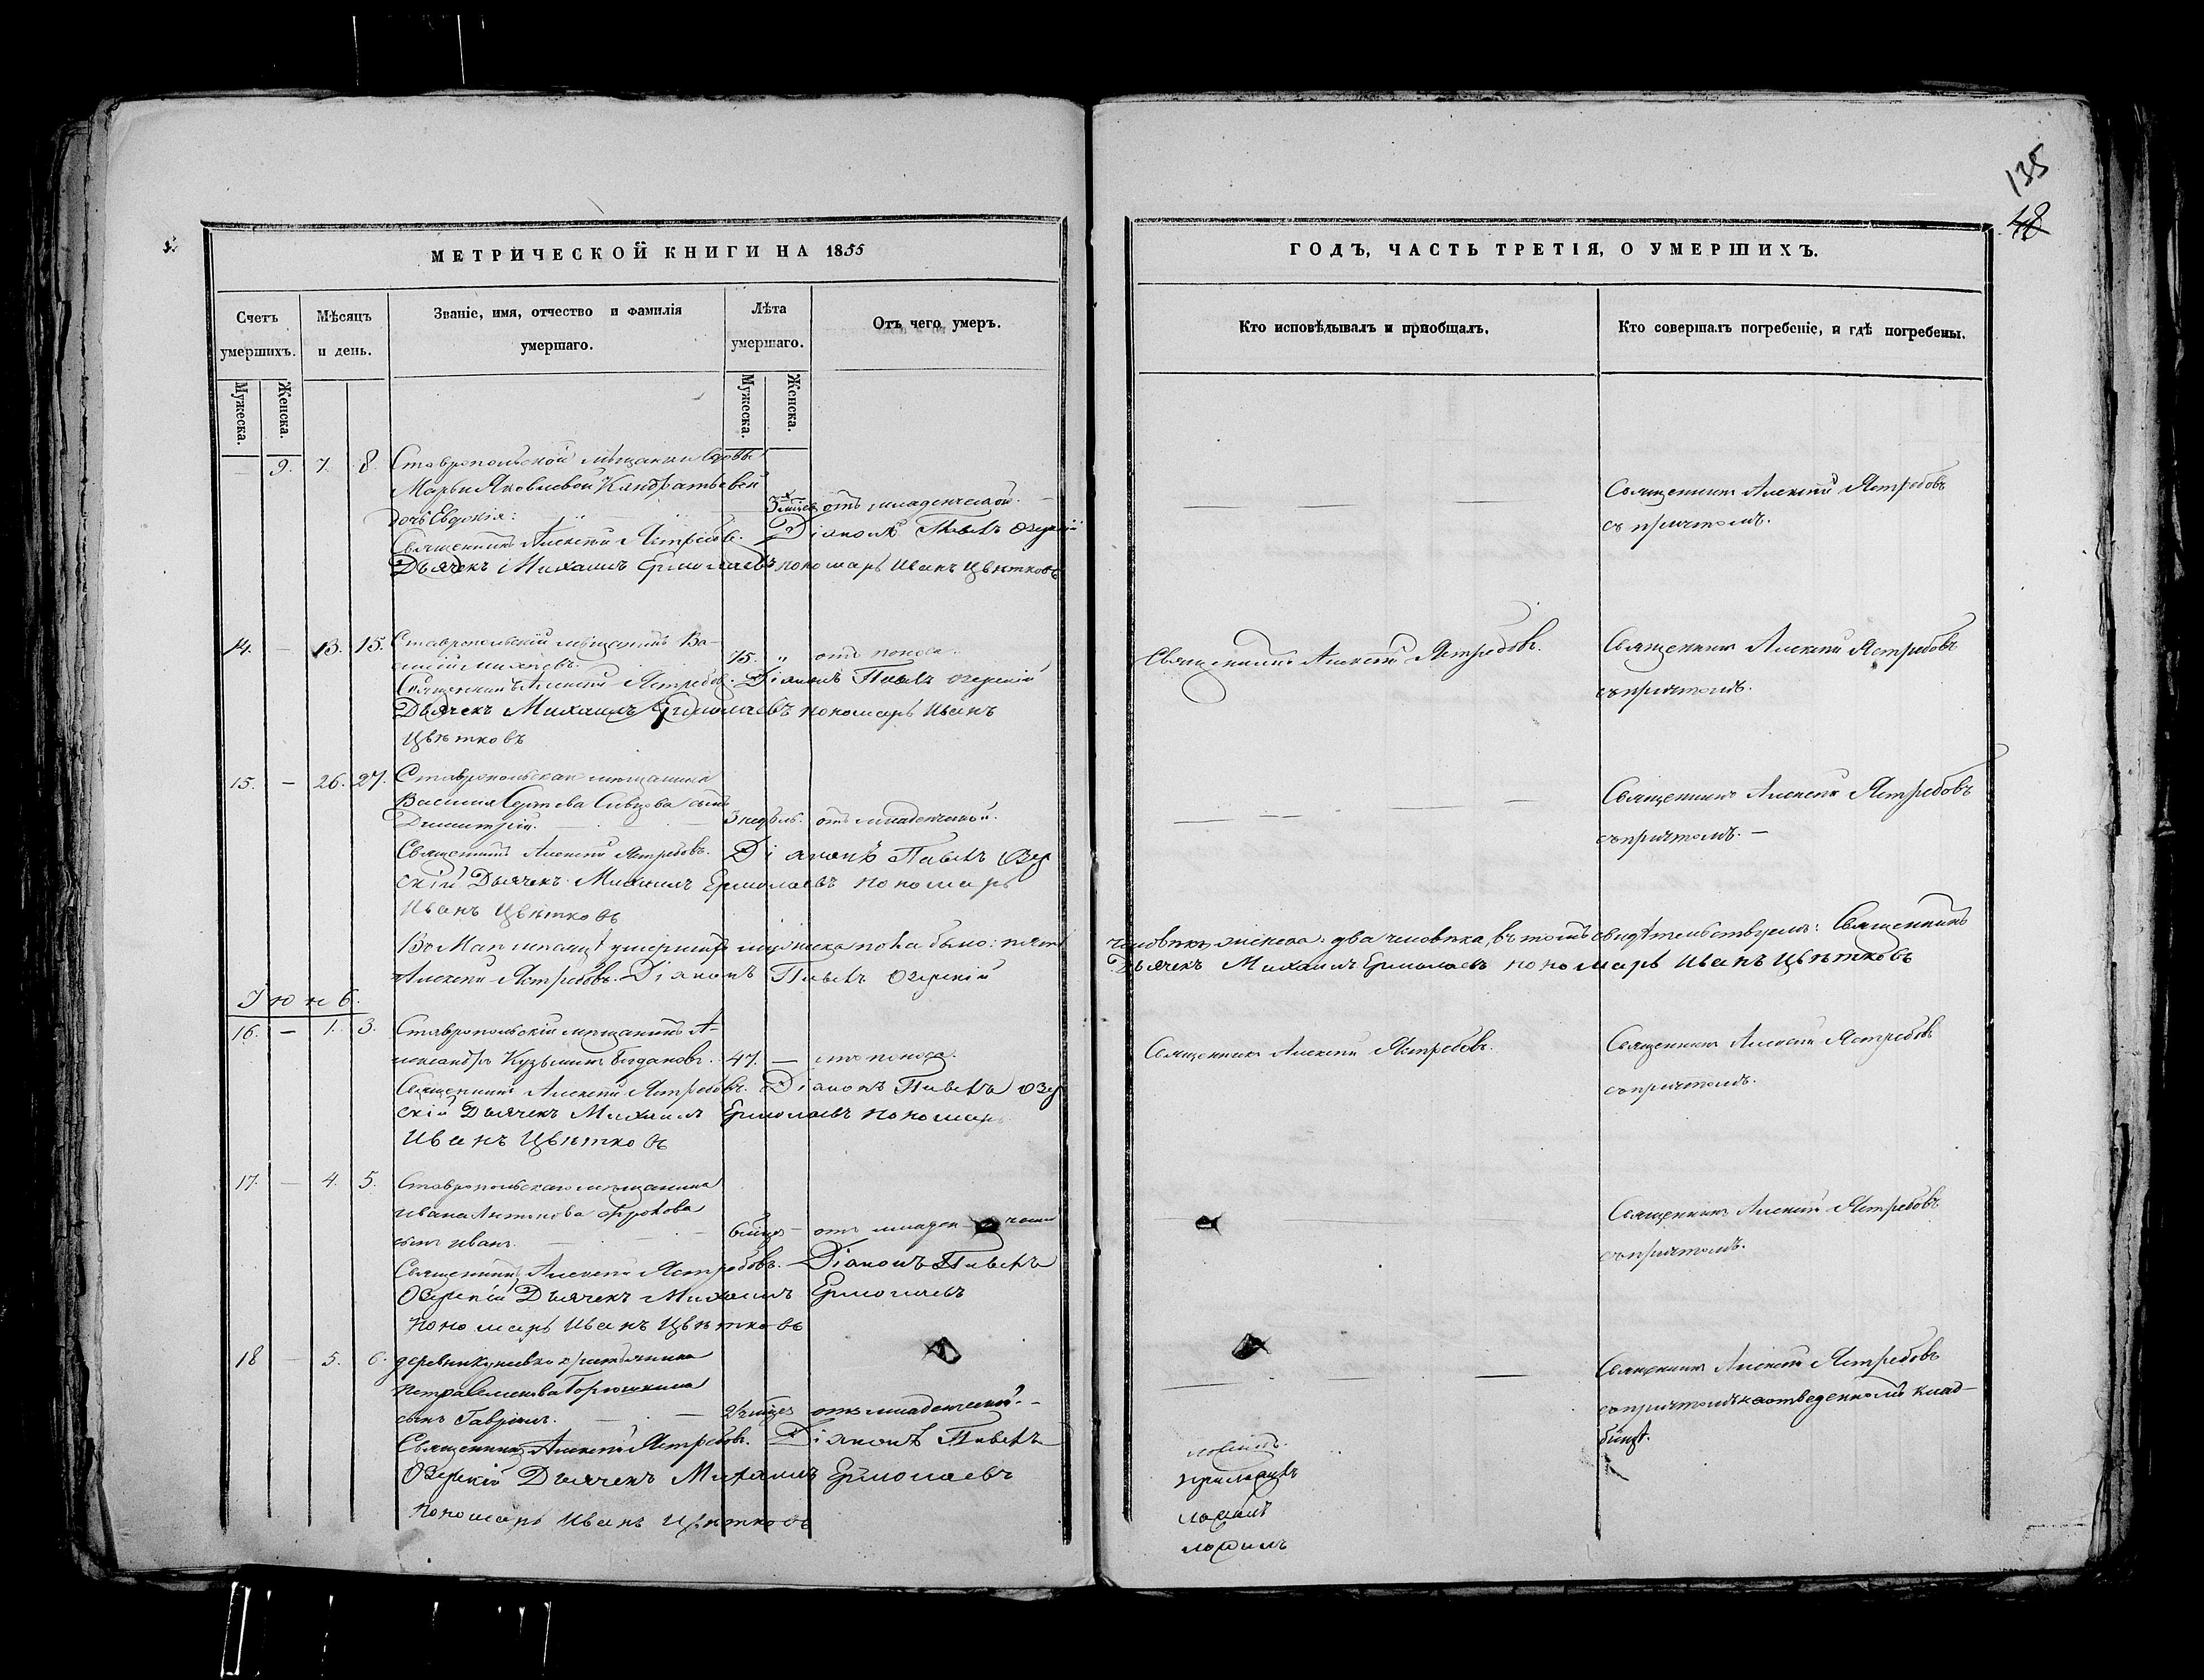 135
48
МЕТРИЧЕСКОЙ КНИГИ НА 1855
ГОДЪ, ЧАСТЬ ТРЕТІЯ, О УМЕРШИХЪ.
Счетъ умершихъ.
Мѣсяцъ и день.
Званіе, имя, отчество и фамилія умершаго.
Лѣта умершаго.
Отъ чего умеръ.
Кто исповѣдывалъ и пріобщалъ.
Кто совершалъ погребеніе, и гдѣ погребены.
Мужеска.
Женска.
Мужеска.
Женска.
9. 7. 8. Ставропольской мѣщанки
Марьи Яковлевой Кандратьевой
дочь Евдокія: отъ младенческой.
Священникъ Алексѣй Ястребовъ. Діаконъ Павелъ Озерскій
Дьячекъ Михаилъ Ермолаевъ пономарь Иванъ Цвѣтковъ
Священникъ Алексѣй Ястребовъ
съ причтомъ.
14. – 13. 15. Ставропольскій мѣщанинъ Ва-
силій 75. " отъ поноса.
Священникъ Алексѣй Ястребовъ. Діаконъ Павелъ Озерскій
Дьячекъ Михаилъ Ермолаевъ пономарь Иванъ
Цвѣтковъ
Священникъ Алексѣй Ястребовъ.
Священникъ Алексѣй Ястребовъ
съ причтомъ.
15. – 26. 27. Ставропольскаго мѣщанина
Василія Сергѣева сынъ
Димитрій. 3 недѣль. отъ младенческой.
Священникъ Алексѣй Ястребовъ. Діаконъ Павелъ Озер
скій Дьячекъ Михаилъ Ермолаевъ пономарь
Иванъ Цвѣтковъ
Священникъ Алексѣй Ястребовъ
съ причтомъ. –
Въ Маѣ мѣсяцѣ умершихъ мужеска пола было: пять человѣкъ, женска: два человѣка, въ томъ свидѣтельствуемъ: Священникъ
Алексѣй Ястребовъ. Діаконъ Павелъ Озерскій Дьячекъ Михаилъ Ермолаевъ пономарь Иванъ Цвѣтковъ
Іюнь.
16. – 1. 3. Ставропольскій мѣщанинъ А-
лександръ Кузьминъ Богдановъ. 47. – отъ поноса.
Священникъ Алексѣй Ястребовъ. Діаконъ Павелъ Озер
скій Дьячекъ Михаилъ Ермолаевъ пономарь
Иванъ Цвѣтковъ
Священникъ Алексѣй Ястребовъ.
Священникъ Алексѣй Ястребовъ
съ причтомъ.
17. – 4. 5. Ставропольскаго мѣщанина
Ивана Антонова
сынъ Иванъ. 6 мѣсяц. отъ младенческой
Священникъ Алексѣй Ястребовъ. Діаконъ Павелъ
Озерскій Дьячекъ Михаилъ Ермолаевъ
пономарь Иванъ Цвѣтковъ
Священникъ Алексѣй Ястребовъ
съ причтомъ.
18 – 5. 6. деревни крестьянина
Петра Семенова Горюшкина
сынъ Гавріилъ. отъ младенческой. –
Священникъ Алексѣй Ястребовъ. Діаконъ Павелъ
Озерскій Дьячекъ Михаилъ Ермолаевъ
пономарь Иванъ Цвѣтковъ
Священникъ Алексѣй Ястребовъ
съ причтомъ на отведенномъ клад-
бищѣ.